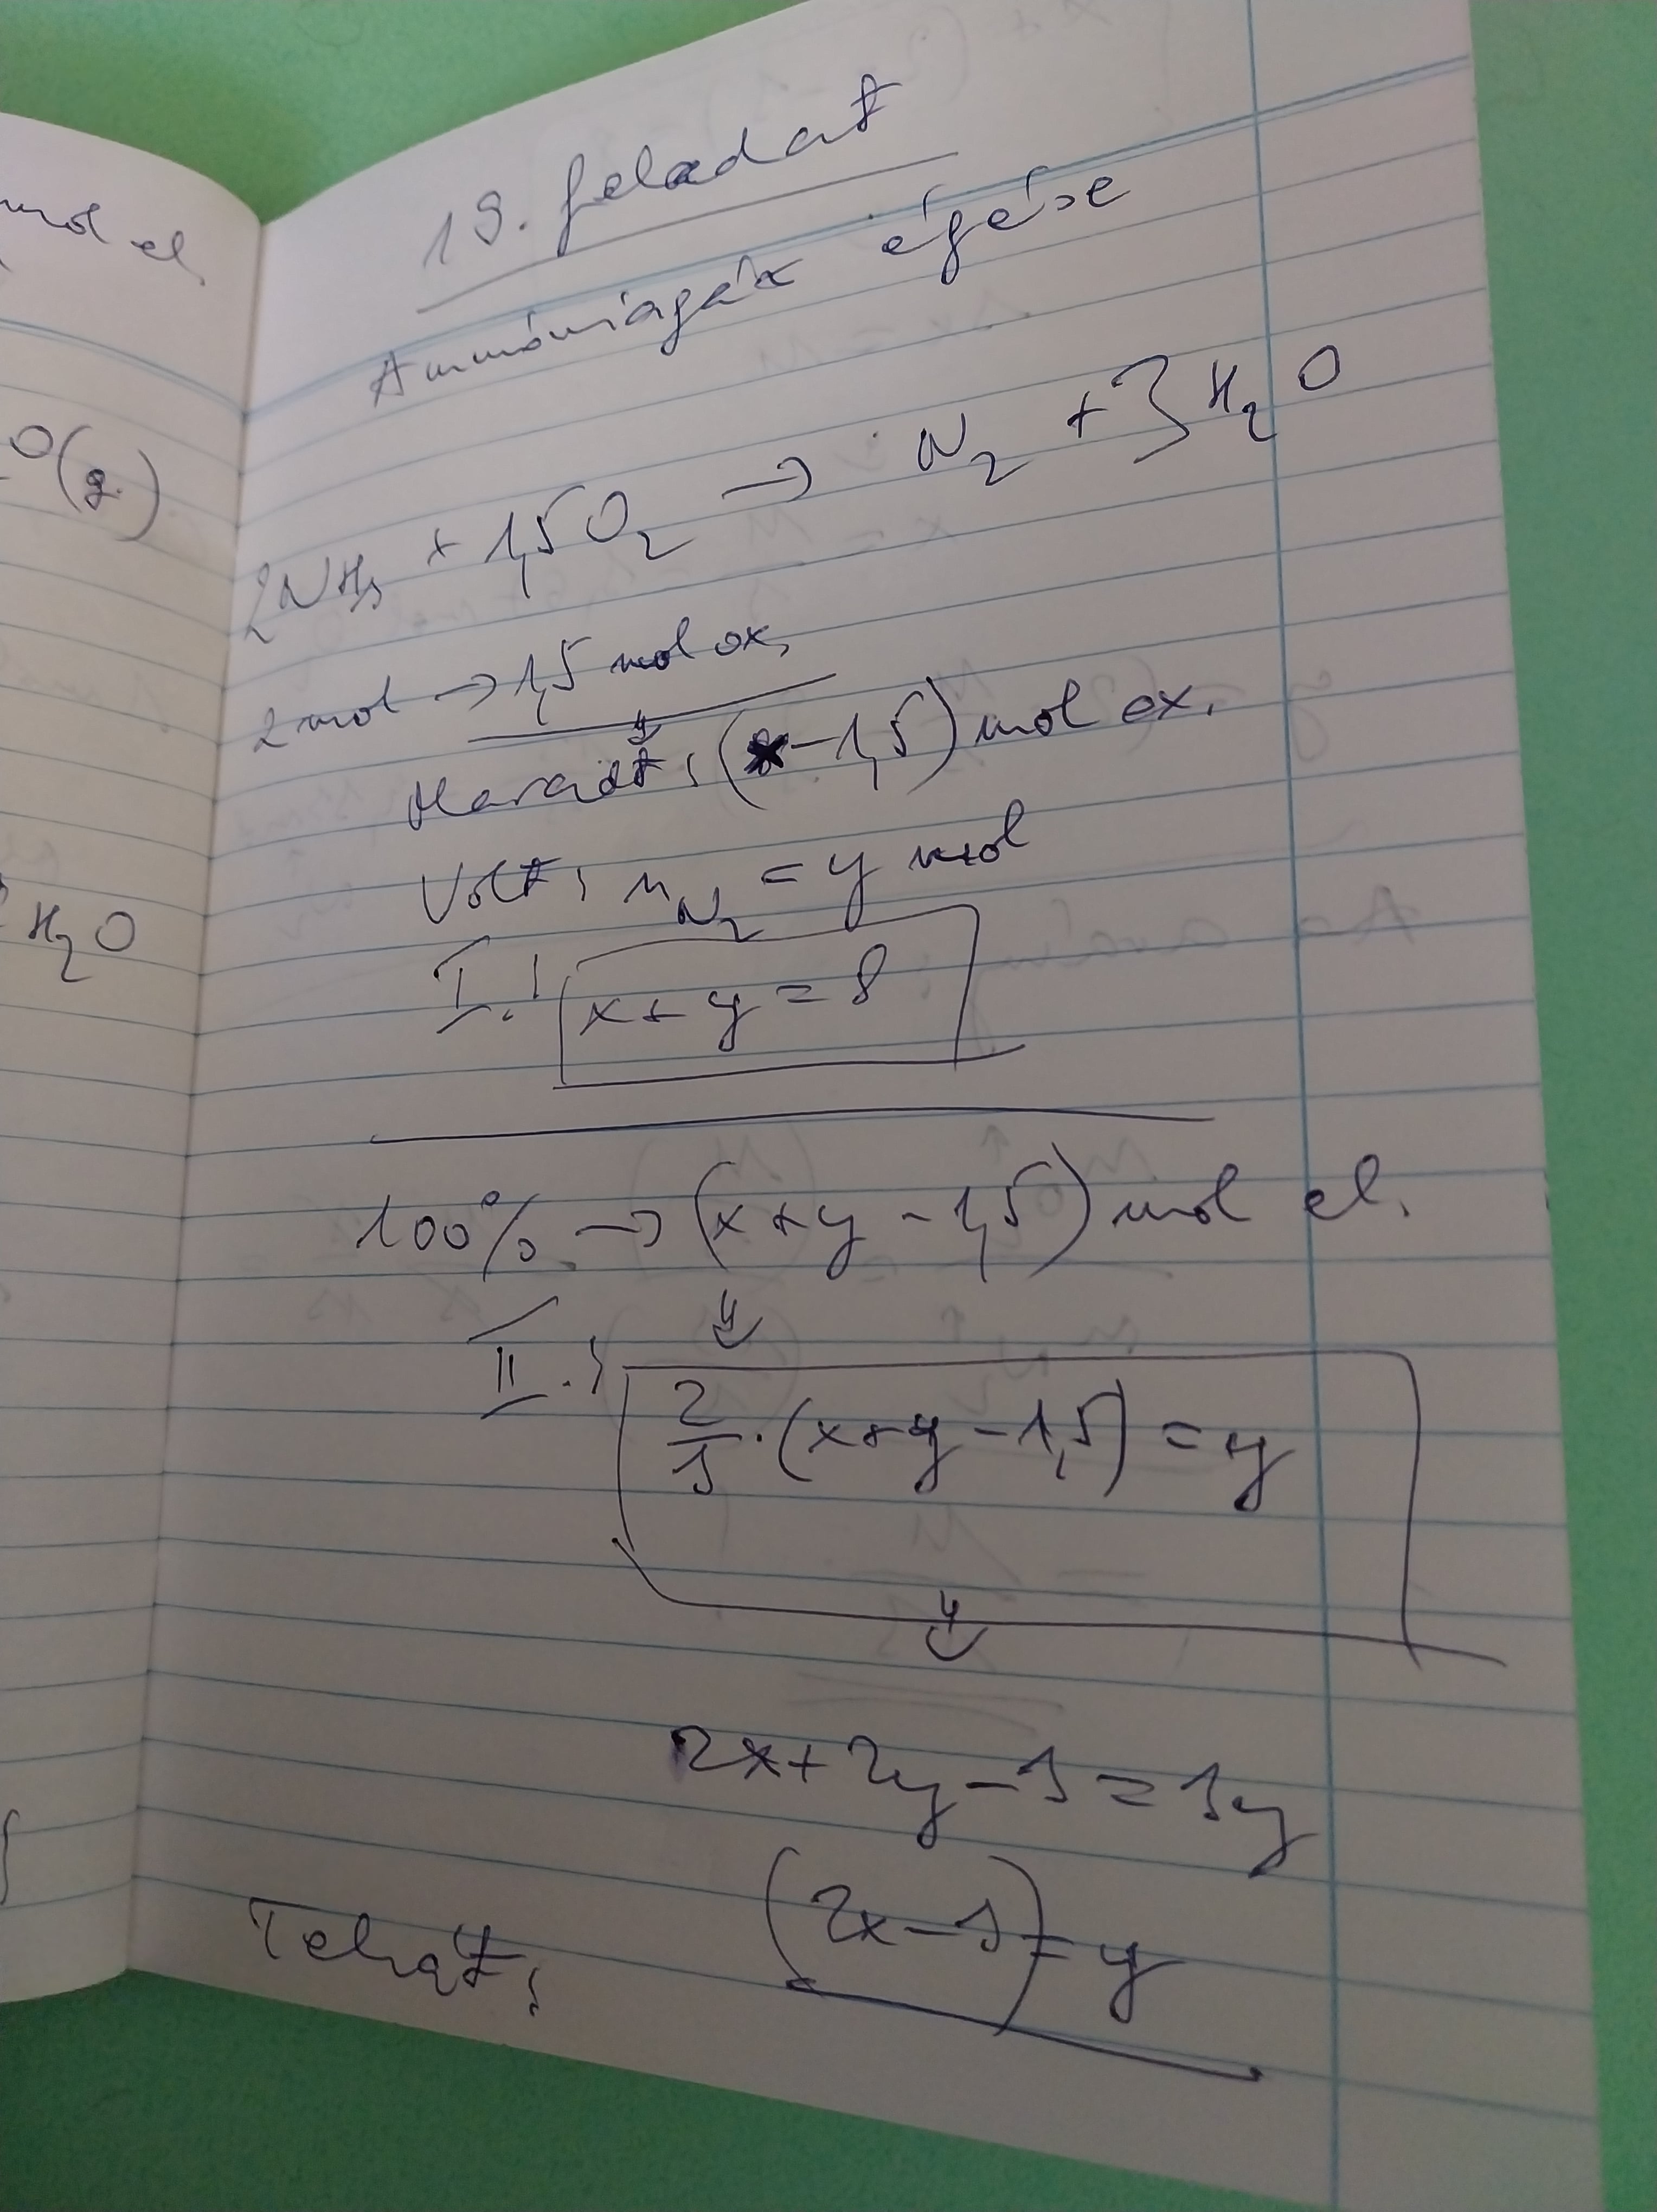 mol el,
O(g.)
H₂O
19. feladat
Ammóniagáz égése
2NH₃ + 1,5O₂ → N₂ + 3H₂O
2 mol → 1,5 mol ox,
Maradt: (x-1,5) mol ox.
Volt: n_N₂ = y mol
I.: x+y=8
100% → (x+y-1,5) mol el.
II.: 2/3·(x+y-1,5) = y
2x+2y-3=3y
Tehát: (2x-3)=y